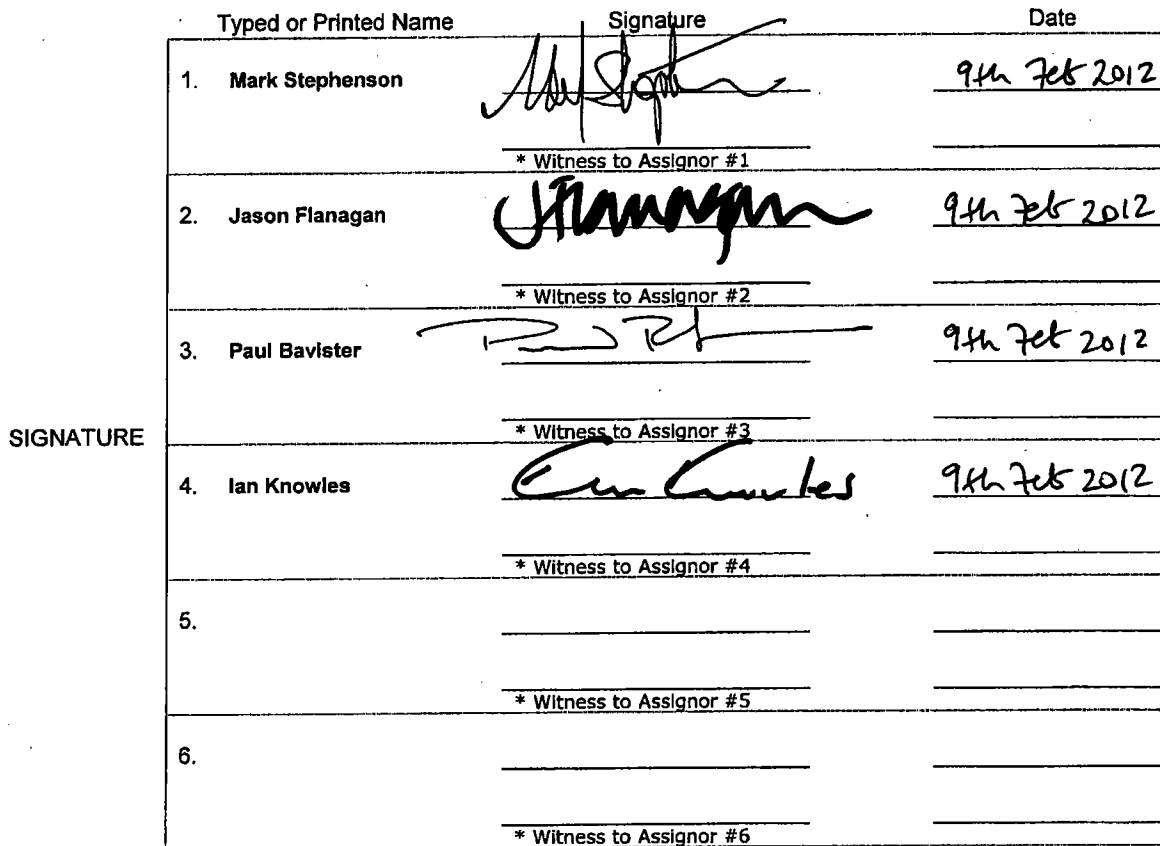 Typed or Printed Name Signature Date
1. Mark Stephenson 9th Feb 2012
* Witness to Assignor #1
2. Jason Flanagan JFlanagan 9th Feb 2012
* Witness to Assignor #2
3. Paul Bavister 9th Feb 2012
* Witness to Assignor #3
SIGNATURE
4. Ian Knowles Ian Knowles 9th Feb 2012
* Witness to Assignor #4
5.
* Witness to Assignor #5
6.
* Witness to Assignor #6